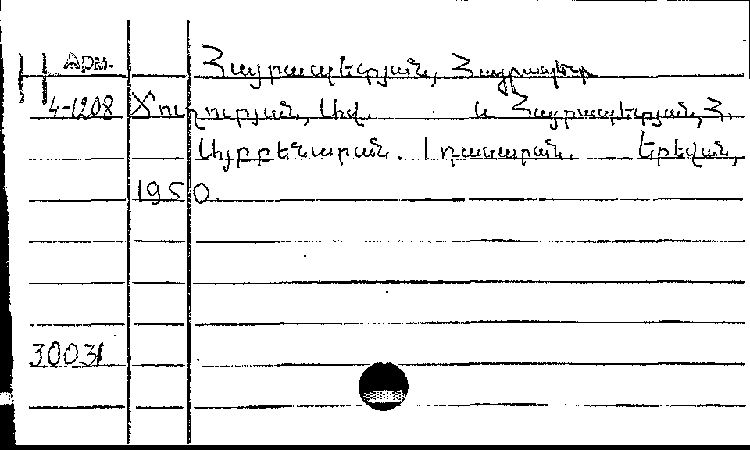 Арм. Հայրապետյան, Հայրապետ
4-1208 Ճուղուրյան, Լիվ. և Հայրապետյան, Հ.
Այբբենարան. I դասարան. Երևան,
1950.
30031